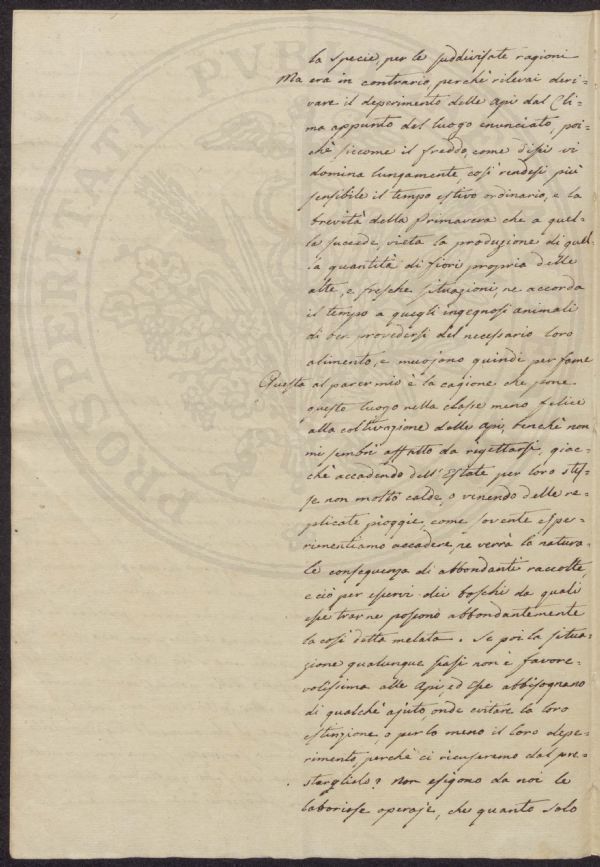 la specie, per le suddivisate ragioni
Ma era in contrario, perchè rilevai deri-
vare il deperimento delle Api dal Cli-
ma appunto del luogo enunciato, poi-
chè siccome il freddo, come dissi vi
domina lungamente, così rendesi più
sensibile il tempo estivo ordinario, e la
brevità della Primavera che a quel-
la succede, vieta la produzione di quel-
la quantità di fiori propria delle
alte, e fresche situazioni, ne accorda
il tempo a quegli ingegnosi animali
di ben provedersi del necessario loro
alimento, e muojono quindi per fame
Questa al parer mio è la cagione che pone
questo luogo nella classe meno felice
alla coltivazione delle Api, benchè non
mi sembri affatto da rigettarsi, giac-
chè accadendo dell'Estate per loro stes-
se non molto calde, o venendo delle re-
plicate pioggie, come sovente esper-
rimentiamo accadere, ne verrà la natura-
le conseguenza di abbondanti raccolte,
e ciò per esservi dei boschi da quali
esse trarne possono abbondantemente
la così detta melata. Se poi la situa-
zione qualunque siasi non è favore-
volissima alle Api, ed esse abbisognano
di qualchè ajuto, onde evitare la loro
estinzione, o per lo meno il loro depe-
rimento, perchè ci ricuseremo dal pre-
starglielo? Non esigono da noi le
laboriose operaje, che quanto solo
PVB
PROSPERITAT